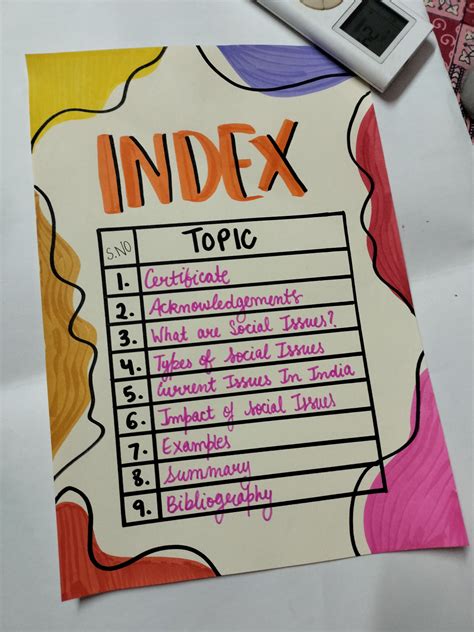 INDEX
S.NO TOPIC
1. Certificate
2. Acknowledgements
3. What are Social Issues?
4. Types of Social Issues
5. Current Issues In India
6. Impact of Social Issues
7. Examples
8. Summary
9. Bibliography